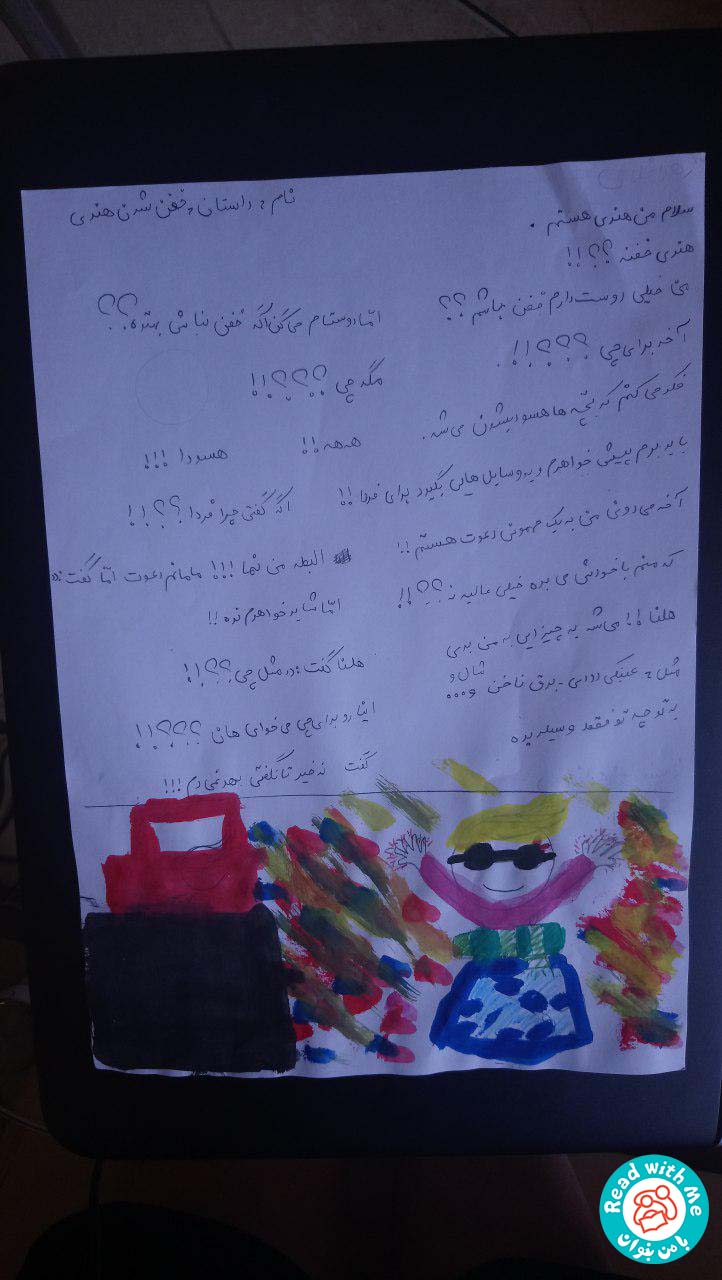 نام : داستان : خفن شدن هنری
سلام من هنری هستم .
هنری خفنه ؟؟!!
خیلی دوست دارم خفن باشم ؟؟ امّا دوستام می گن اگه خفن نباشی بهتره ؟؟
آخه برای چی ؟؟؟!! . مگه چی ؟؟؟!!
فکر می کنم که بچّه ها هسودیشون می شه . هه هه !! هسودا !!!
باید برم پیش خواهرم و یه وسایل هایی بگیرم برای فردا !! اگه گفتی چرا فردا ؟؟!!
آخه می دونی من به یک مهمونی دعوت هستم !! البطه من تنها !!! مامانم دعوت امّا گفت :
که منم با خودش می بره خیلی عالیه نه ؟؟!! امّا شاید خواهرم نده !!
هلنا !! می شه یه چیزایی به من بدی هلنا گفت : مثل چی ؟؟!!
مثل : عینکی دودی - برق ناخن شال و و ... اینا رو برای چی می خوای هان ؟؟؟!!
به تو چه تو فقط وسیله بده گفت نه خیر تا نگفتی بهد نمی دم !!!
Read with Me
با من بخوان